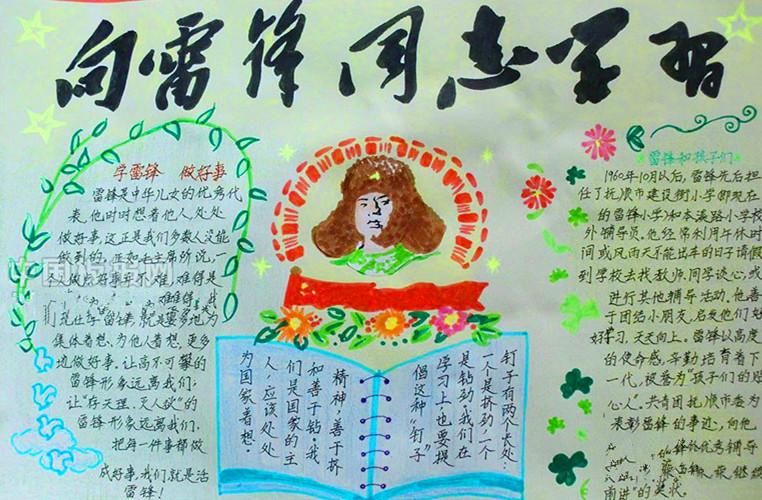 向雷锋同志学习
学雷锋 做好事
雷锋是中华儿女的优秀代
表，他时时想着他人，处处
做好事，这正是我们多数人没能
做到的。正如毛主席所说，一
人做点好事并不难，难得是
我们现在学雷锋，就是要多地为
集体着想、为他人着想、更多
地做好事。让高不可攀的
雷锋形象远离我们；
让“存天理、灭人欲”的
雷锋形象远离我们。
把每一件事都做
成好事，我们就是活
雷锋！
钉子有两个长处：
一个是挤劲，一个
是钻劲，我们在
学习上，也要提
倡这种“钉子”
精神，善于挤
和善于钻。我
们是国家的主
人，应该处处
为国家着想。
雷锋和孩子们
1960年10月以后，雷锋先后担
任了抚顺市建设街小学(即现在
的雷锋小学)和本溪路小学校
外辅导员。他经常利用午休时
间或风雨天不能出车的日子请假
到学校去找教师、同学谈心，或
进行其他辅导活动。他善
于团结小朋友，启发他们好
好学习，天天向上。雷锋以高度
的使命感，辛勤培育着下
一代，被誉为“孩子们的贴
心人”。共青团抚顺市委为
表彰雷锋的事迹，向他
优秀辅导